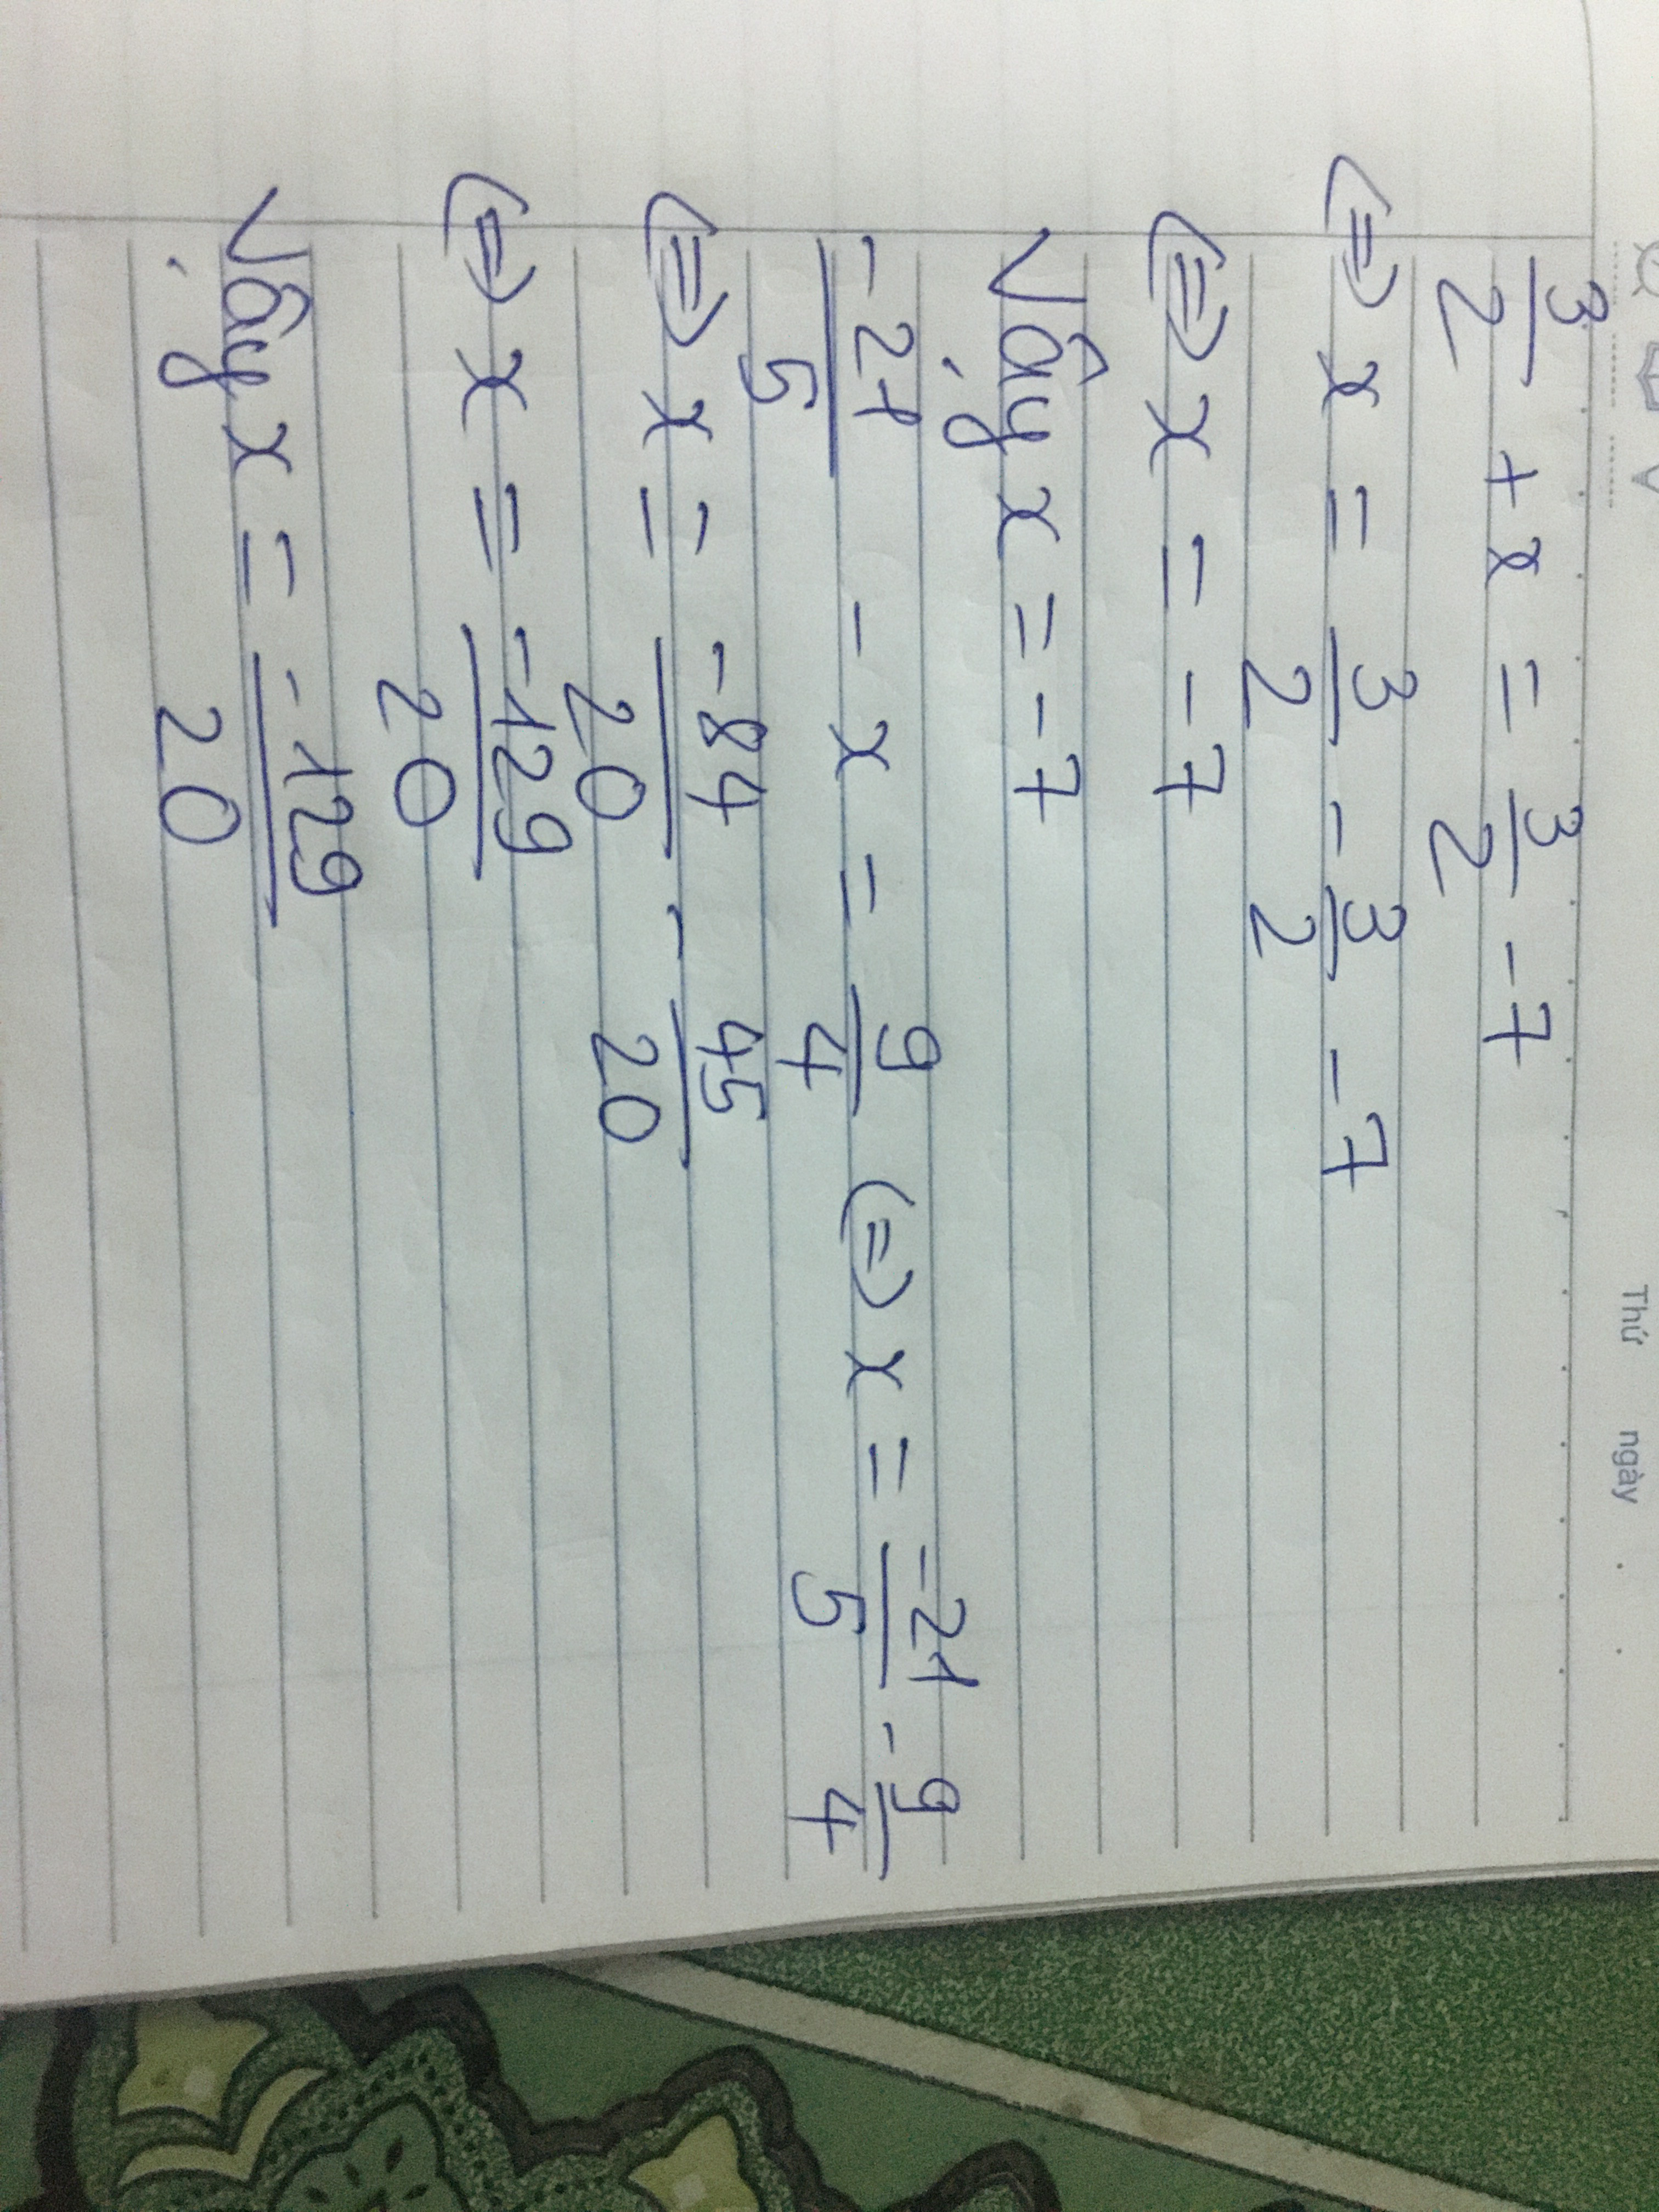 Thứ ngày . .
3/2 + x = 3/2 - 7
(=) x = 3/2 - 3/2 - 7
(=) x = -7
Vậy x = -7
-21/5 - x = 9/4 (=) x = -21/5 - 9/4
(=) x = -84/20 - 45/20
(=) x = -129/20
Vậy x = -129/20